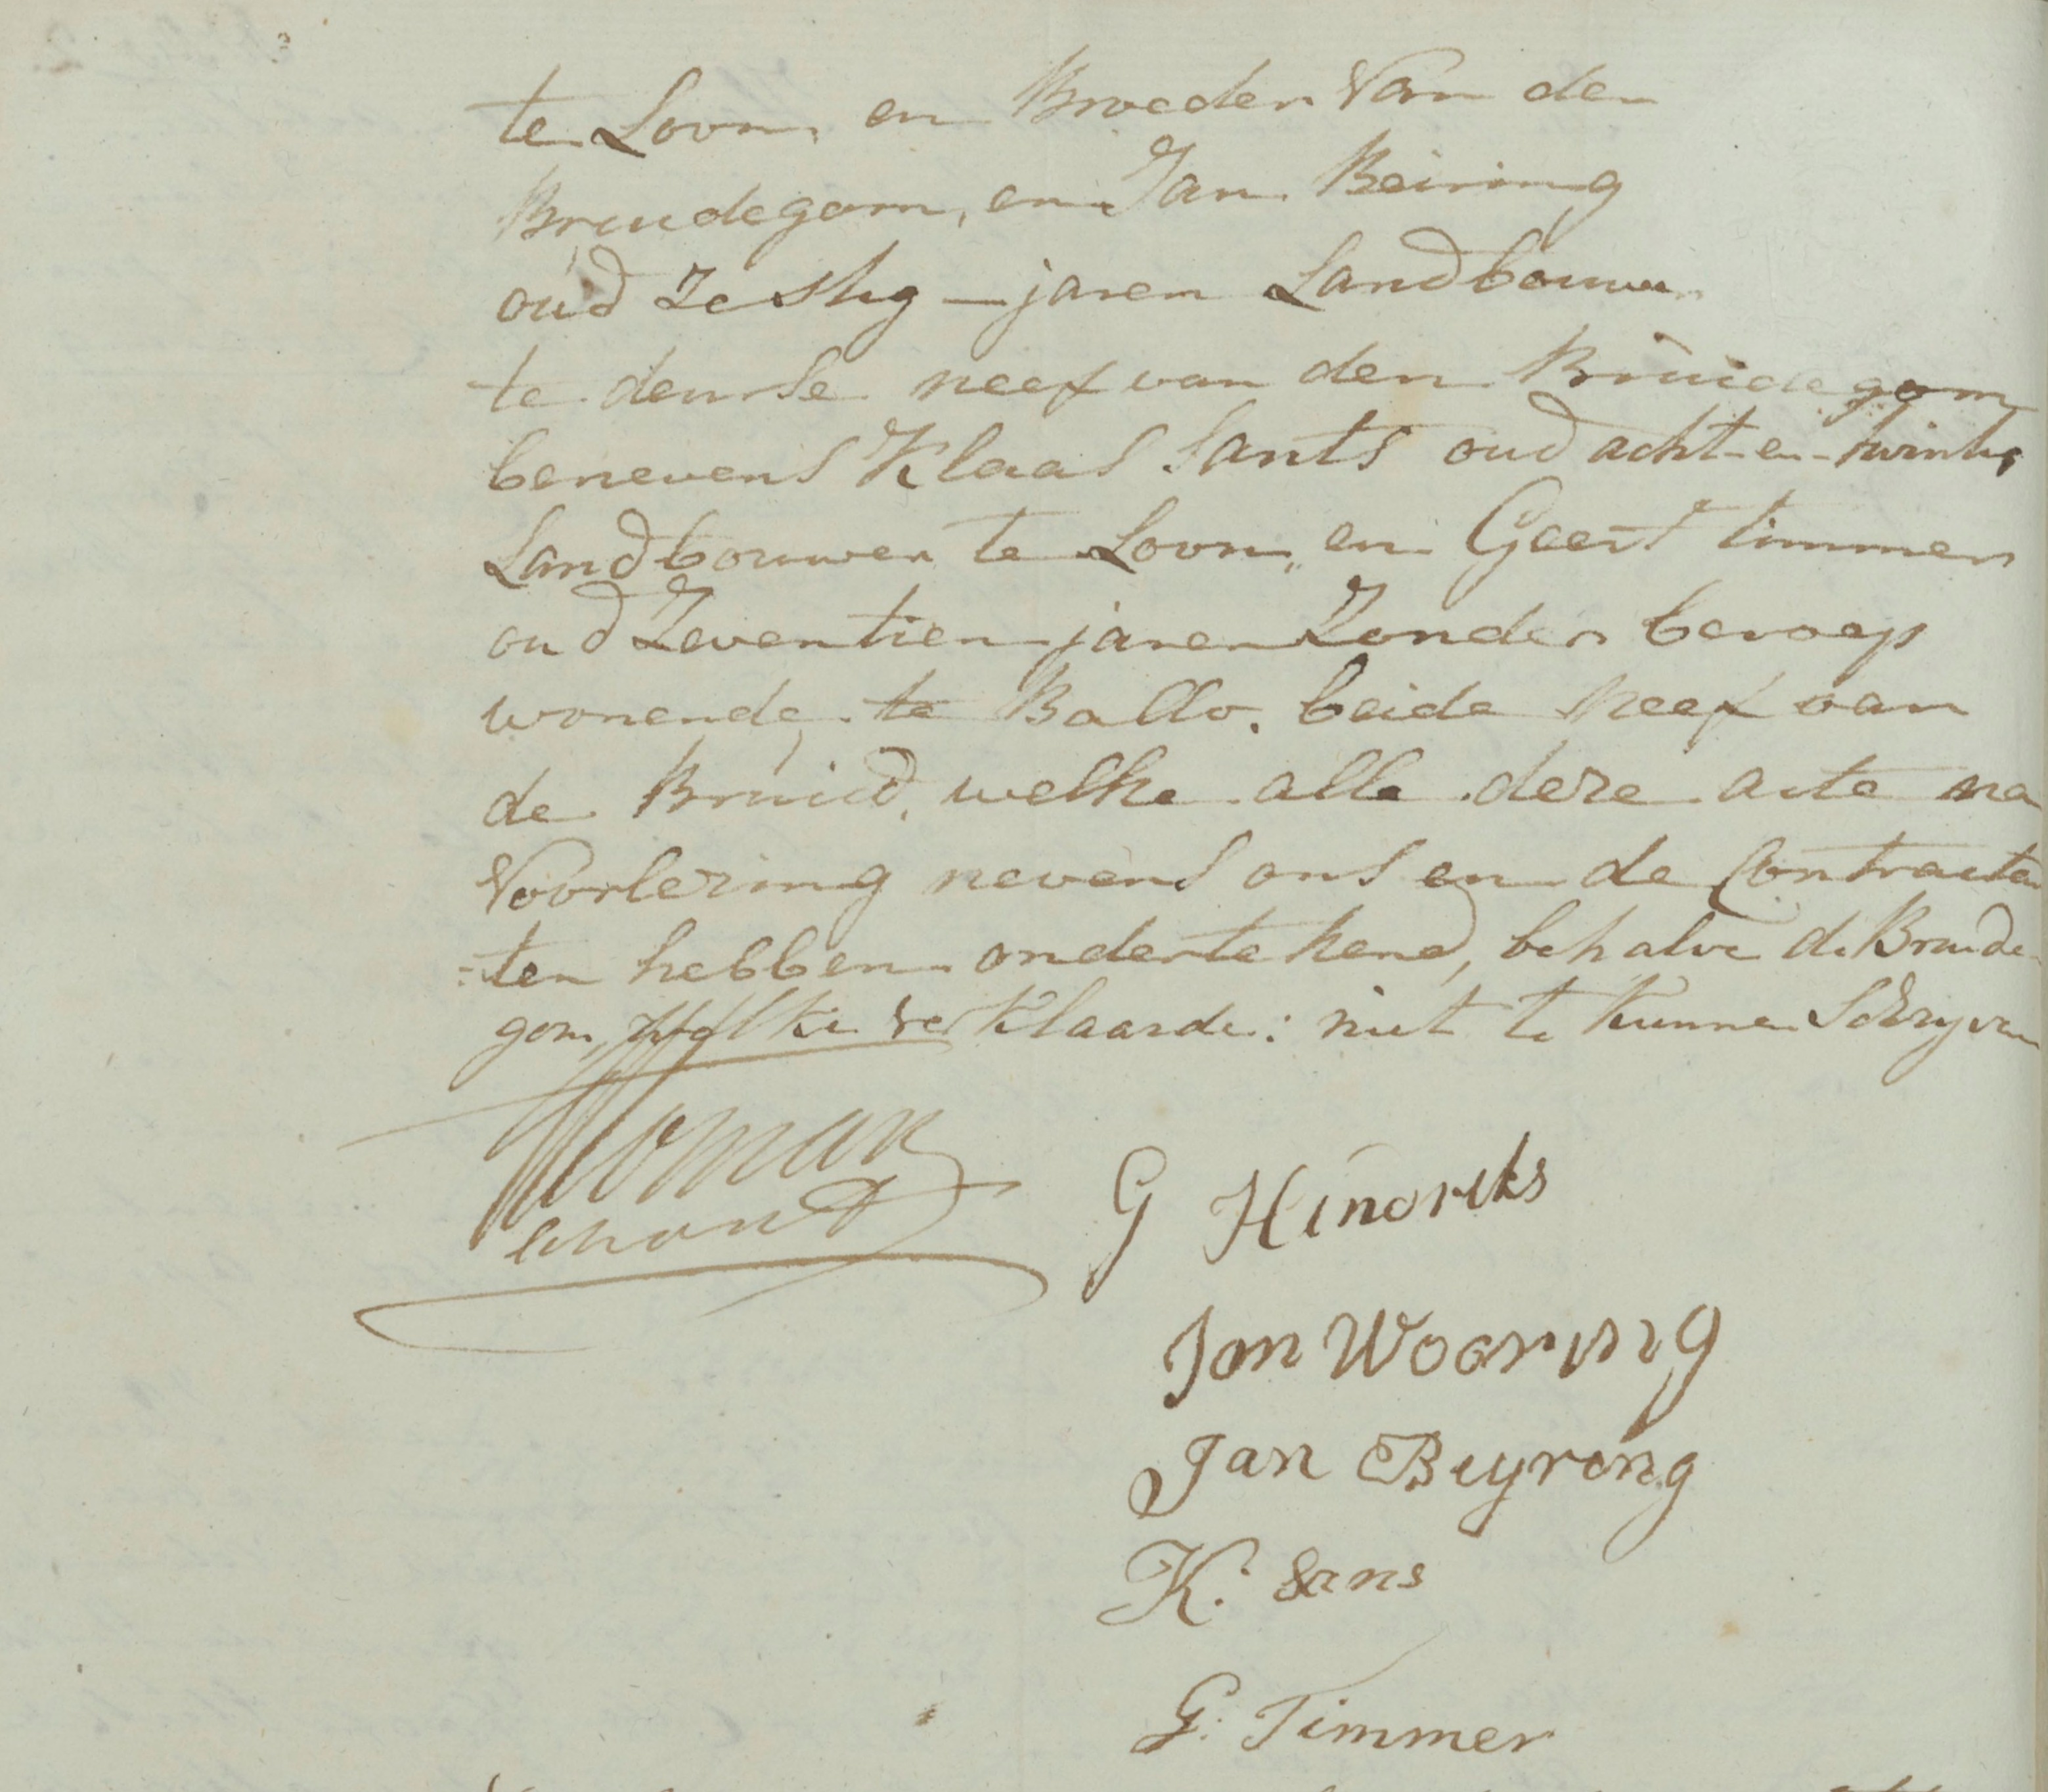 te Loon, en Broeder Van den
Bruidegom, en Jan Beiring
oud Zestig jaren Landbouwer
te deurse neef van den Bruidegom
benevens Klaas Sants oud acht-en-twintig
Landbouwer te Loon, en Geert timmer
oud Zeventien jaren Zonder beroep
wonende te Ballo. beide neef van
de Bruid, welke alle deze acte na
Voorlezing nevens ons en de Contracten
=ten hebben ondertekend, behalve de Bruide
gom, welke verklaarde: niet te kunnen Schryven
Homan
schout
G Hindriks
Jan Woaring
Jan Beyring
K. Sans
G. Timmer